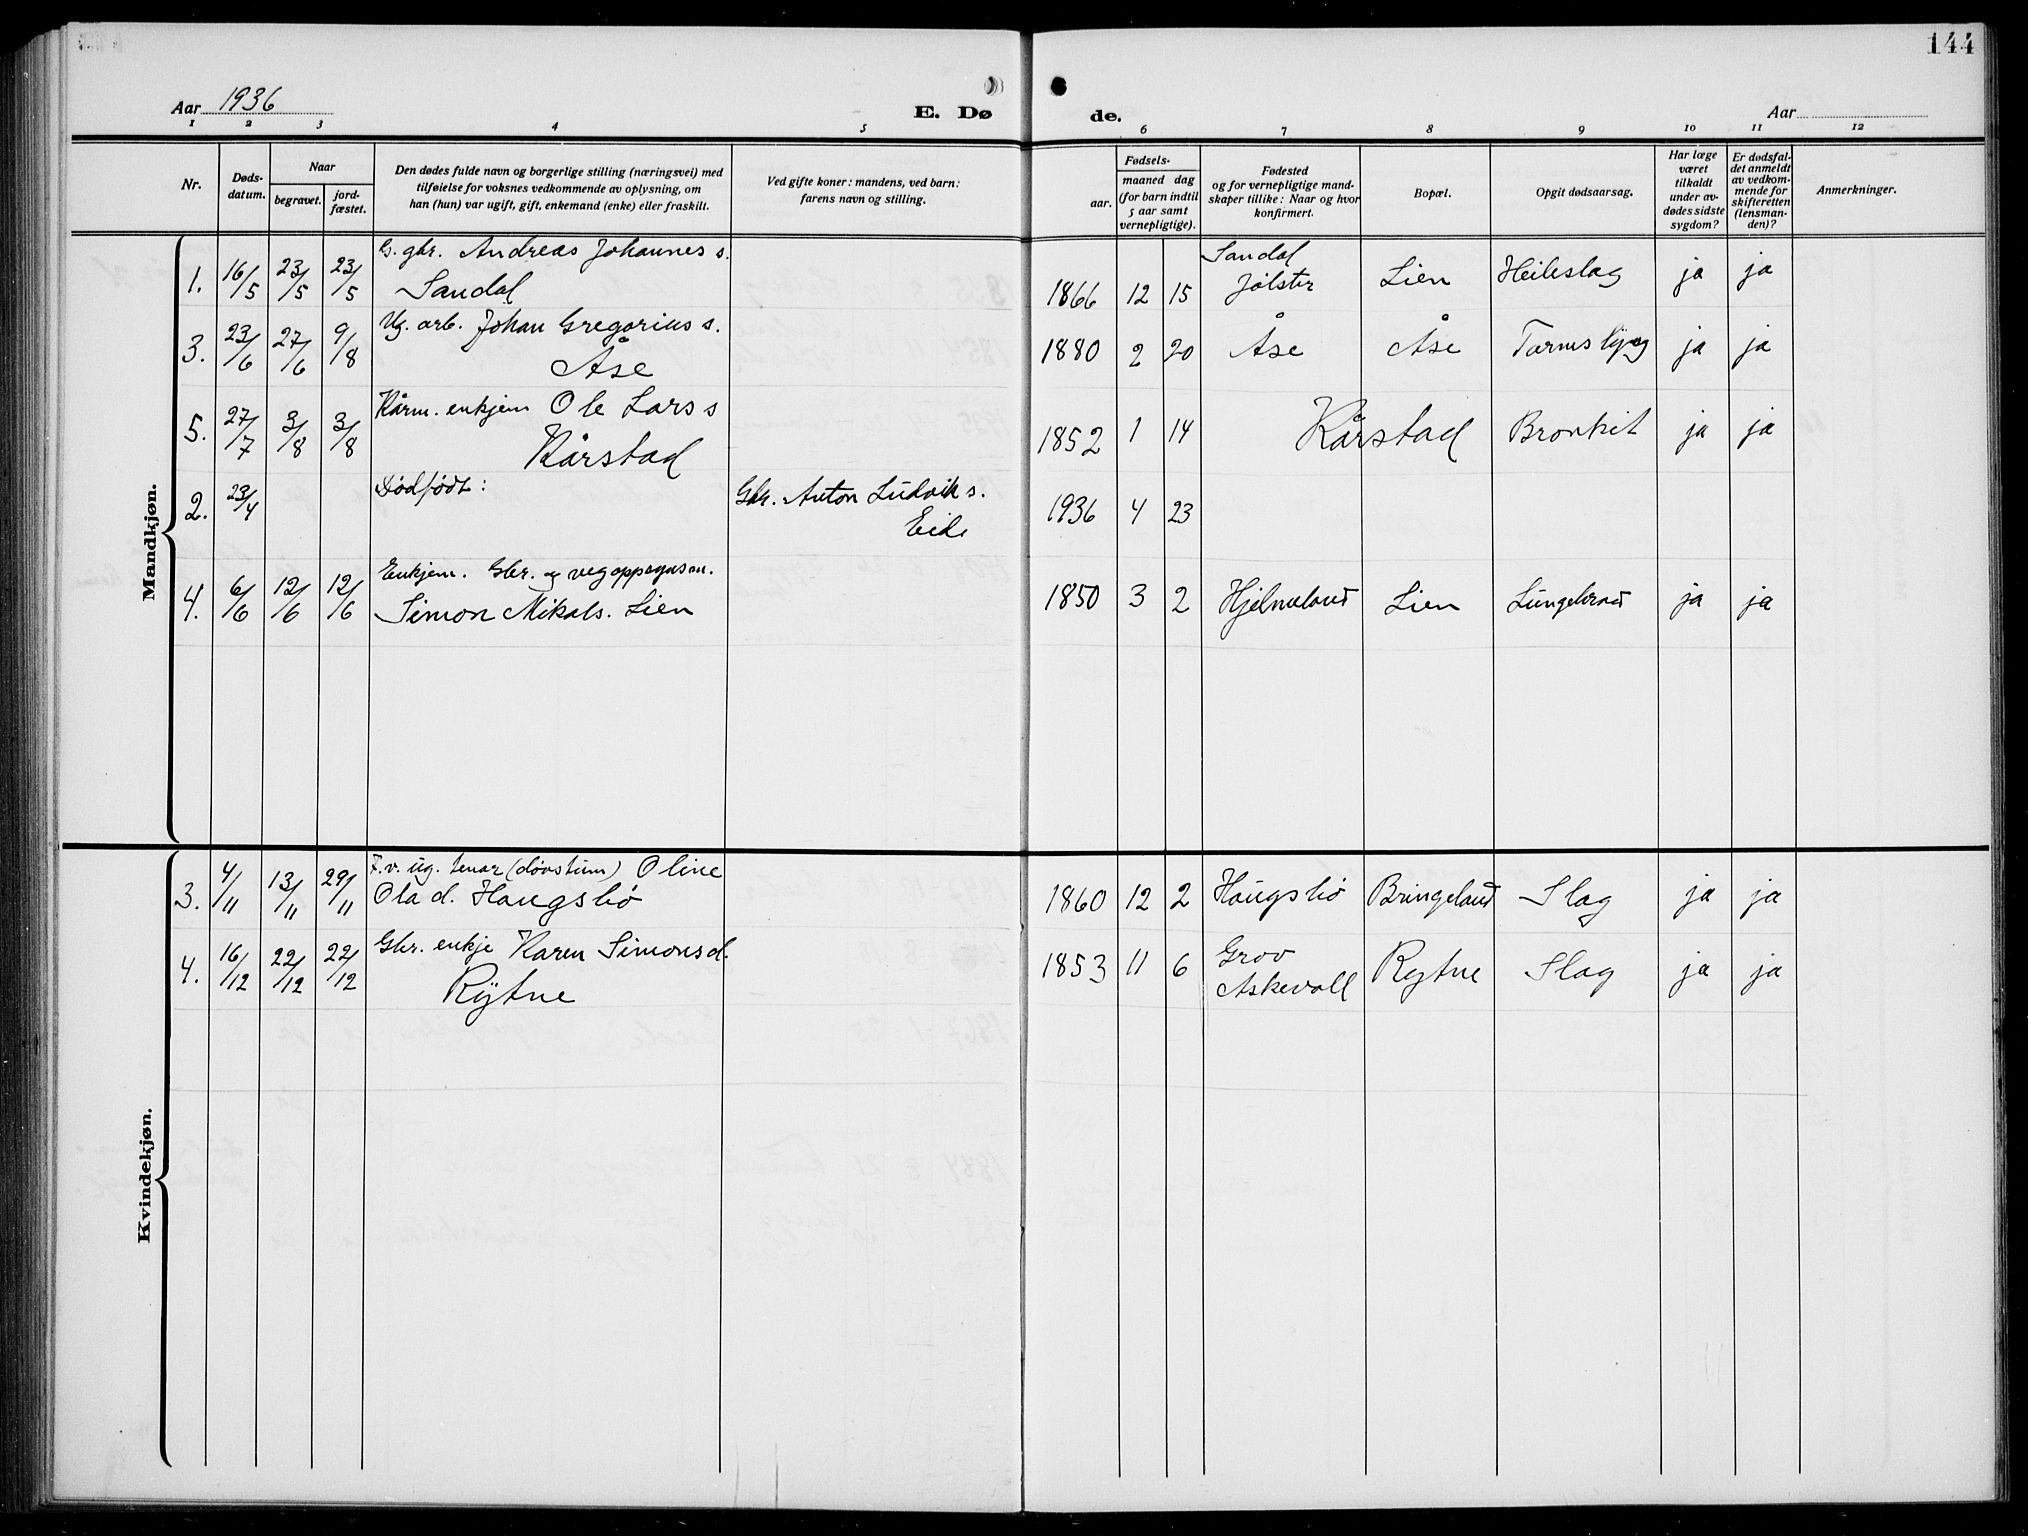 144
Aar 1936
E. Dø
de.
Aar
1 2 3 4 5 6 7 8 9 10 11 12
Nr.
Døds-
datum.
Naar
begravet.
jord-
fæstet.
Den dødes fulde navn og borgerlige stilling (næringsvei) med
tilføielse for voksnes vedkommende av oplysning, om
han (hun) var ugift, gift, enkemand (enke) eller fraskilt.
Ved gifte koner: mandens, ved barn:
farens navn og stilling.
Fødsels-
aar.
maaned dag
(for barn indtil
5 aar samt
vernepligtige).
Fødested
og for vernepligtige mand-
skaper tillike: Naar og hvor
konfirmert.
Bopæl.
Opgit dødsaarsag.
Har læge
været
tilkaldt
under av-
dødes sidste
sygdom?
Er dødsfal-
det anmeldt
av vedkom-
mende for
skifteretten
(lensman-
den)?
Anmerkninger.
Mandkjøn.
1. 16/5 23/5 23/5 G. gbr. Andreas Johannes s.
Sandal
1866 12 15 Sandal
Jølster Lien Heileslag ja ja
3. 23/6 27/6 9/8 Ug. arb. Johan Gregorius s.
Åse
1880 2 20 Åse Åse ja ja
5. 27/7 3/8 3/8 Kårm. enkjem Ole Lars s
Kårstad
1852 1 14 Kårstad Bronkit ja ja
2. 23/4 Dødfødt: Gbr. Anton Ludvik s.
Eide
1936 4 23
4. 6/6 12/6 12/6 Enkjem. Gbr. og vegoppsynsm.
Simon Mikals. Lien
1850 3 2 Hjelmeland Lien Lungebrand ja ja
Kvindekjøn.
3. 4/11 13/11 29/11 F.v. ug. tenar (døvstum) Oline
Ola d. Haugsbø
1860 12 2 Haugsbø Bringeland Slag ja ja
4. 16/12 22/12 22/12 Gbr. enkje Karen Simonsd.
Rytne
1853 11 6 Grov
Askevoll Rytne Slag ja ja